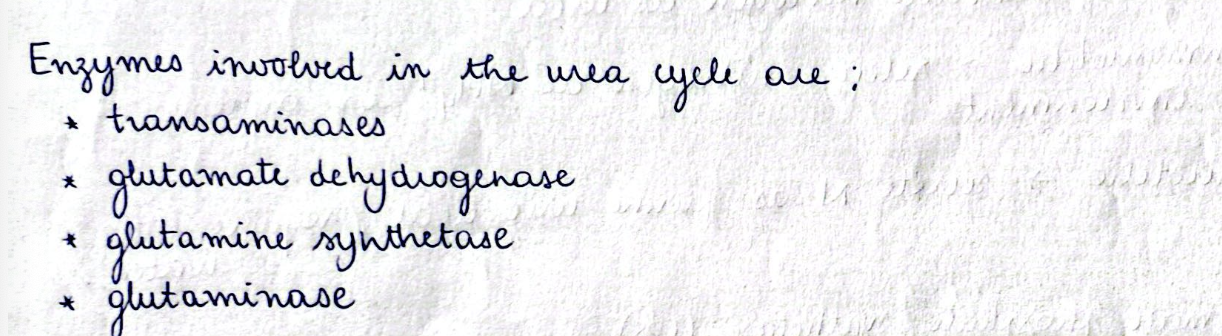 Enzymes involved in the urea cycle are ;
* transaminases
* glutamate dehydrogenase
* glutamine synthetase
* glutaminase